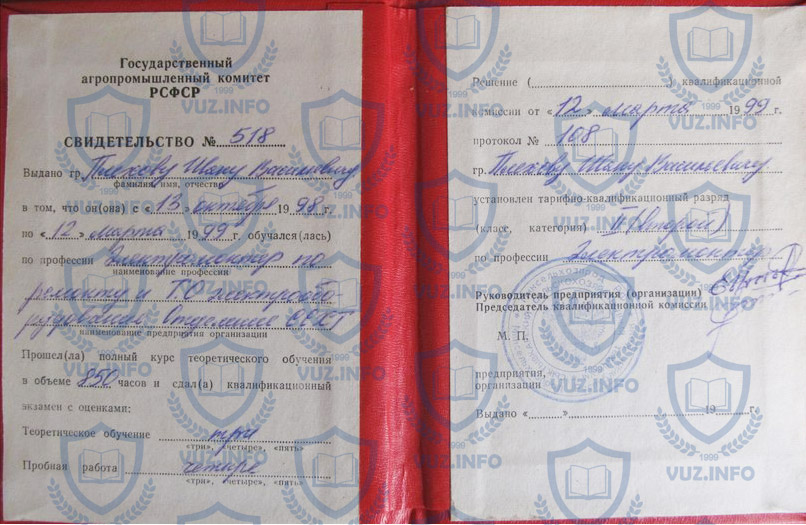 Государственный
агропромышленный комитет
РСФСР
СВИДЕТЕЛЬСТВО № 518
Выдано гр. Ивану Васильевичу
фамилия, имя, отчество
в том, что он(она) с «13» октября 1998 г.
по «12» марта 1999 г. обучался(лась)
по профессии Электромонтер по
наименование профессии
ремонту и ТО электрообо-
рудования
наименование предприятия организации
Прошел(ла) полный курс теоретического обучения
в объеме 850 часов и сдал(а) квалификационный
экзамен с оценками:
Теоретическое обучение три
«три», «четыре», «пять»
Пробная работа четыре
«три», «четыре», «пять»
Решение ( ) квалификационной
комиссии от «12» марта 1999 г.
протокол № 108
гр. Ивану Васильевичу
установлен тарифно-квалификационный разряд
(класс, категория) II (второй)
по профессии Электромонтер
Руководитель предприятия (организации)
Председатель квалификационной комиссии
М. П.
предприятия,
организации
Выдано « » 19 г.
1999
VUZ.INFO